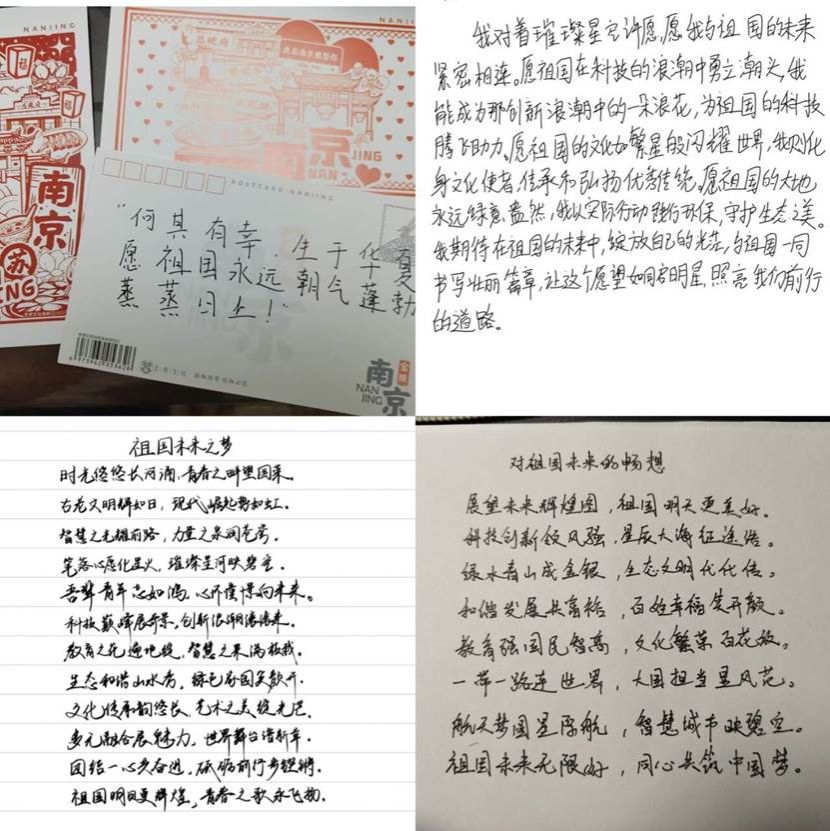 NANJING
总统府
南京
NAN
JING
福
福
南京
苏
NG
POSTCARD·NANJING
“何其有幸，生于华夏
愿祖国永远朝气蓬勃
蒸蒸日上！”
6973962903626
南京
NAN
JING
我对着璀璨星空许愿，愿我与祖国的未来
紧密相连。愿祖国在科技的浪潮中勇立潮头，我
能成为那创新浪潮中的一朵浪花，为祖国的科技
腾飞助力。愿祖国的文化如繁星般闪耀世界，我则化
身文化使者，传承和弘扬优秀传统。愿祖国的大地
永远绿意盎然，我以实际行动践行环保，守护生态之美。
我期待在祖国的未来中，绽放自己的光芒，与祖国一同
书写壮丽篇章，让这个愿望如同启明星，照亮我们前行
的道路。
祖国未来之梦
时光悠悠长河涌，青春之畔望国来。
古老文明辉如日，现代崛起势如虹。
智慧之光耀前路，力量之泉润苍穹。
笔落心愿化星火，璀璨星河映碧空。
吾辈青年志如鸿，心怀憧憬向未来。
科技巅峰展奇景，创新浪潮滚滚来。
教育之花遍地绽，智慧之果满枝栽。
生态和谐山水秀，绿色家园笑颜开。
文化传承韵悠长，艺术之美绽光芒。
多元融合展魅力，世界舞台谱新章。
团结一心共奋进，砥砺前行步铿锵。
祖国明日更辉煌，青春之歌永飞扬。
对祖国未来的畅想
展望未来辉煌图，祖国明天更美好。
科技创新领风骚，星辰大海征途浩。
绿水青山成金银，生态文明代代传。
和谐发展共富裕，百姓幸福笑开颜。
教育强国民智高，文化繁荣百花放。
一带一路连世界，大国担当显风范。
航天梦圆星际航，智慧城市映碧空。
祖国未来无限好，同心共筑中国梦。